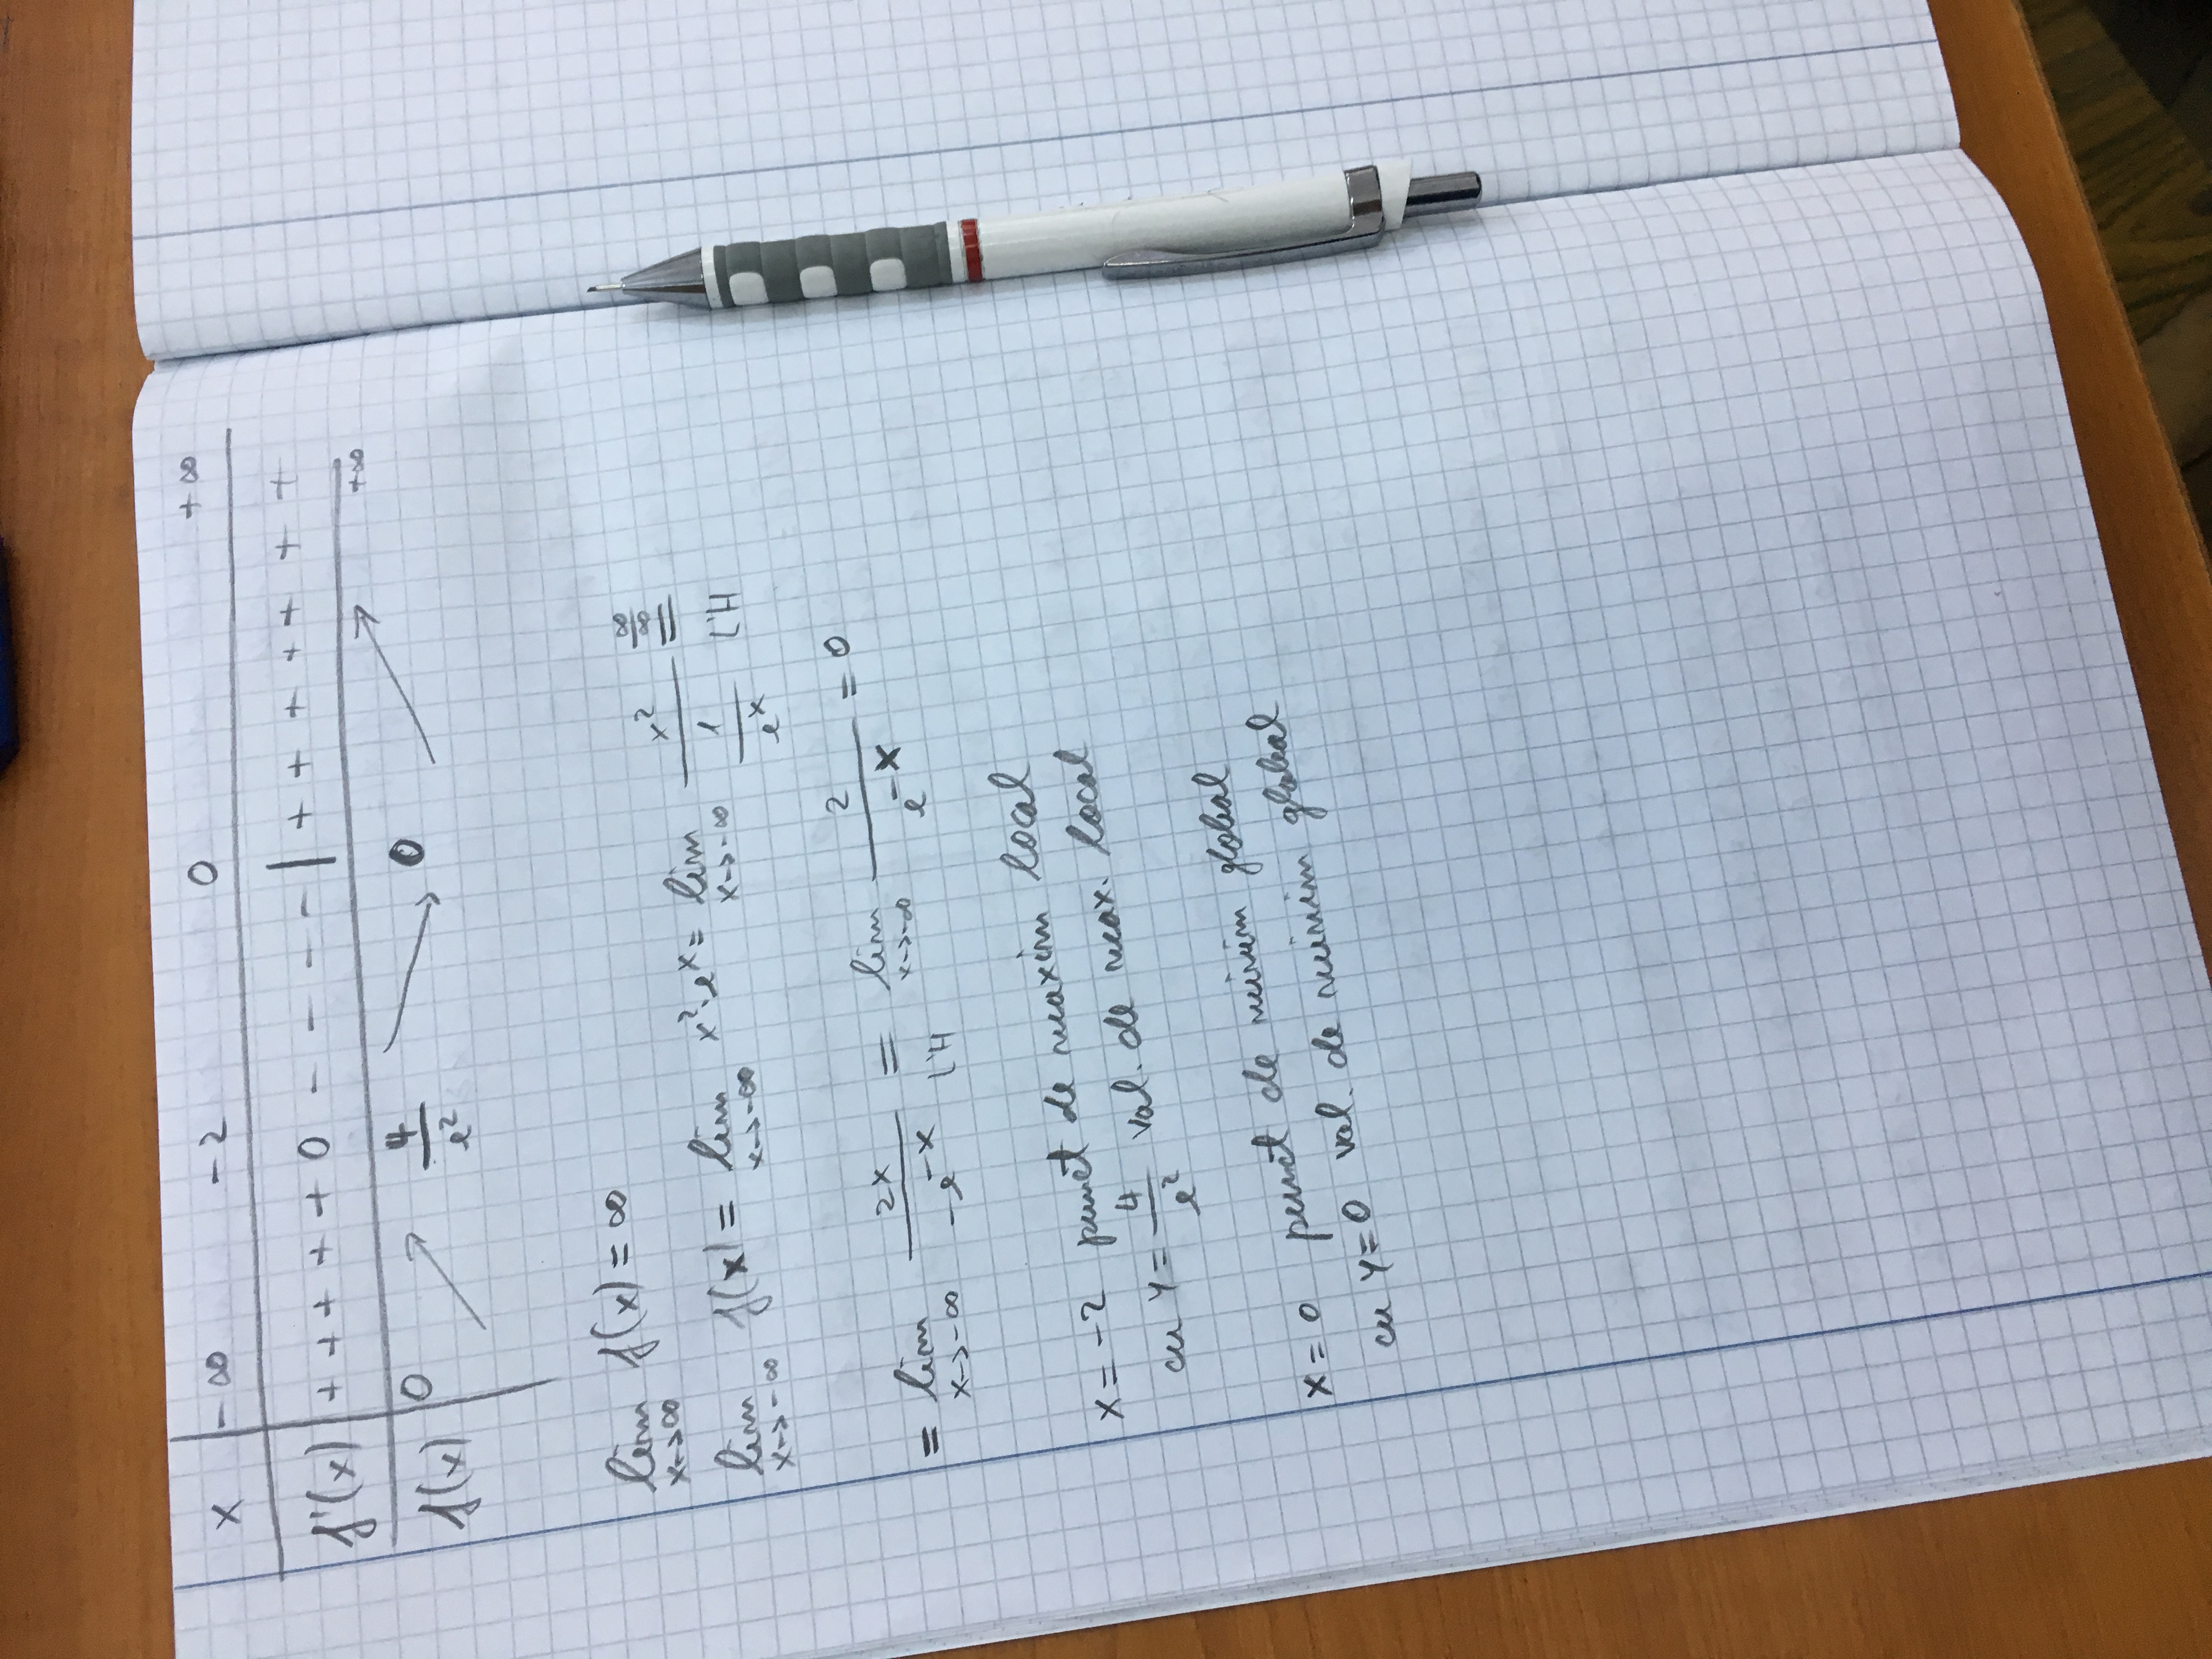 x | -∞ -2 0 +∞
f'(x) | + + + + + 0 - - - - | + + + + + + +
f(x) | 0 ↗ 4/e² ↘ 0 ↗ +∞
lim x->∞ f(x) = ∞
lim x->-∞ f(x) = lim x->-∞ x²·eˣ = lim x->-∞ x²/(1/eˣ) =(∞/∞, L'H)
= lim x->-∞ 2x/(-e⁻ˣ) =(L'H) lim x->-∞ 2/e⁻ˣ = 0
x = -2 punct de maxim local
cu y = 4/e² val. de max. local
x = 0 punct de minim global
cu y = 0 val. de minim global